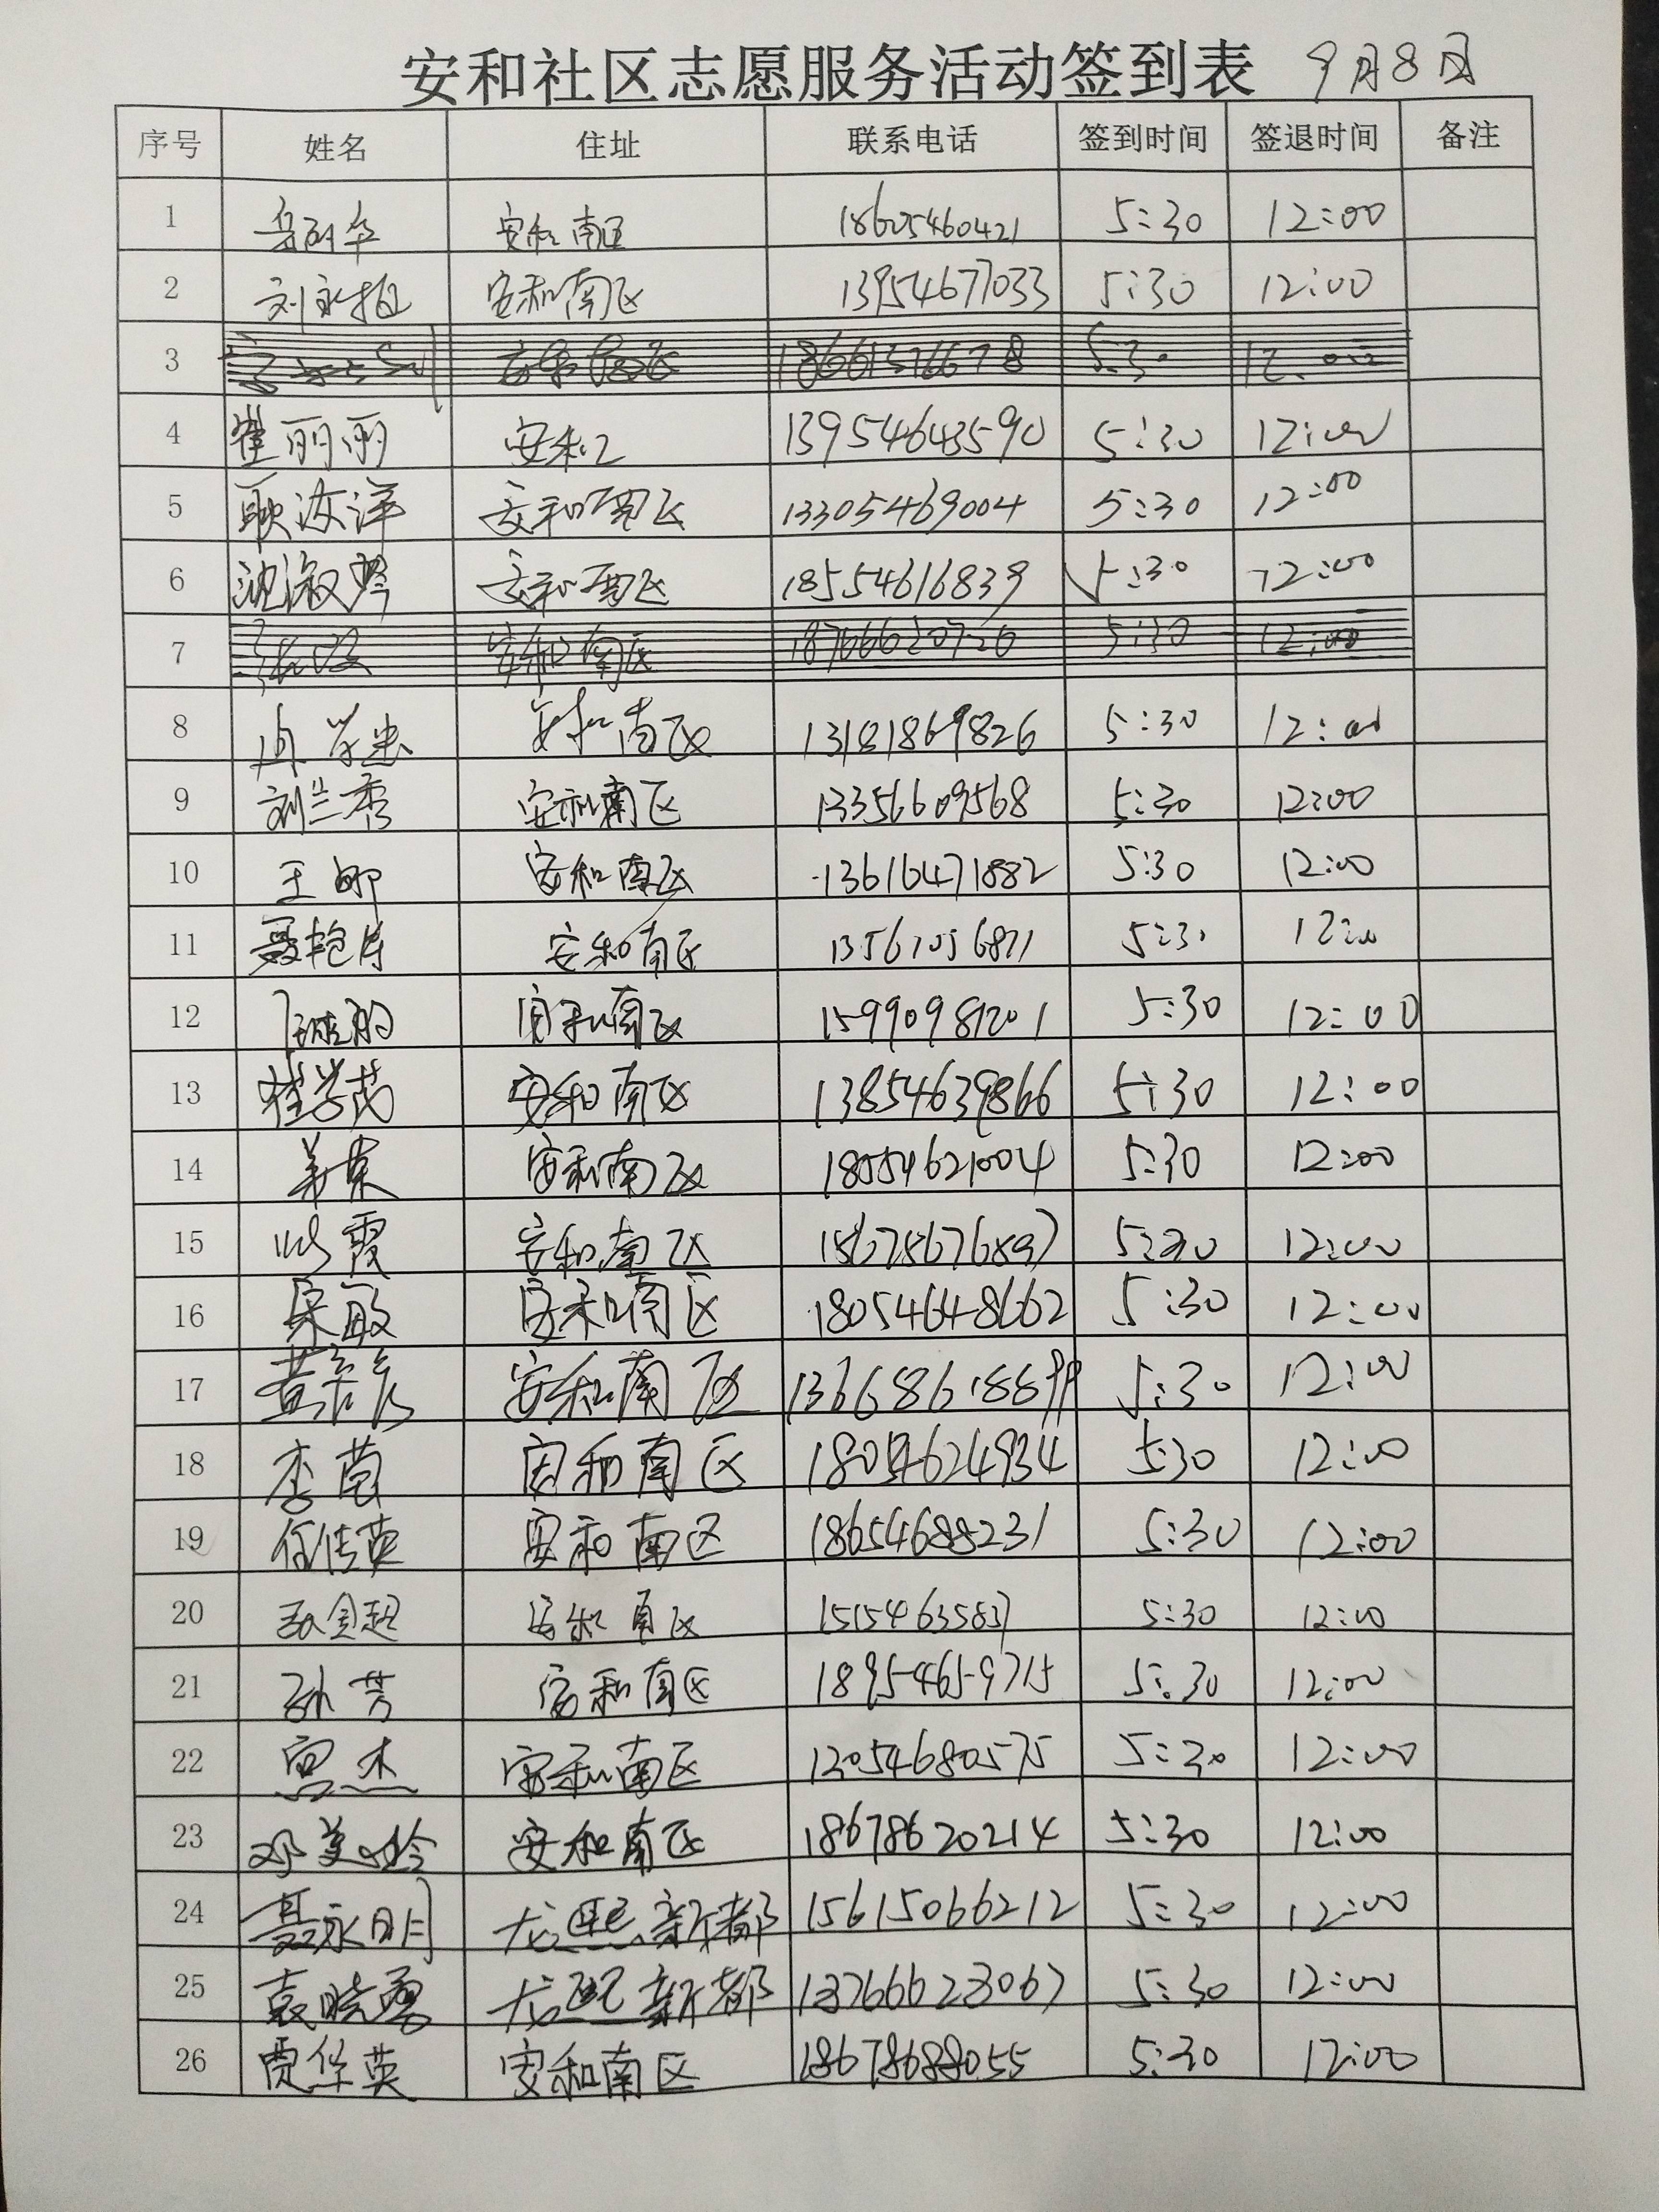 安和社区志愿服务活动签到表 9月8日
序号 姓名 住址 联系电话 签到时间 签退时间 备注
1 安和南区 18605460421 5:30 12:00
2 刘永挺 安和南区 13954677033 5:30 12:00
3 18661376678 5:30 12:00
4 崔丽丽 安和 13954643590 5:30 12:00
5 耿海洋 安和南区 13305469004 5:30 12:00
6 沈淑琴 安和南区 18554616839 5:30 12:00
7 安和南区 18766620726 5:30 12:00
8 安和南区 13181869826 5:30 12:00
9 刘兰香 安和南区 13356609568 5:30 12:00
10 王娜 安和南区 13616471882 5:30 12:00
11 聂艳 安和南区 13561056871 5:30 12:00
12 安和南区 15990981201 5:30 12:00
13 崔学茂 安和南区 13854639866 5:30 12:00
14 安和南区 18054621004 5:30 12:00
15 霞 安和南区 5:30 12:00
16 宋敏 安和南区 18054648662 5:30 12:00
17 黄 安和南区 5:30 12:00
18 李莺 安和南区 18054624934 5:30 12:00
19 任传英 安和南区 18654688231 5:30 12:00
20 孙金超 安和南区 15154635837 5:30 12:00
21 孙芳 安和南区 18954659715 5:30 12:00
22 安和南区 13054680575 5:30 12:00
23 邓美玲 安和南区 18678620214 5:30 12:00
24 聂永明 龙熙新都 15615066212 5:30 12:00
25 袁晓勇 龙熙新都 13766623067 5:30 12:00
26 贾华英 安和南区 18678688055 5:30 12:00